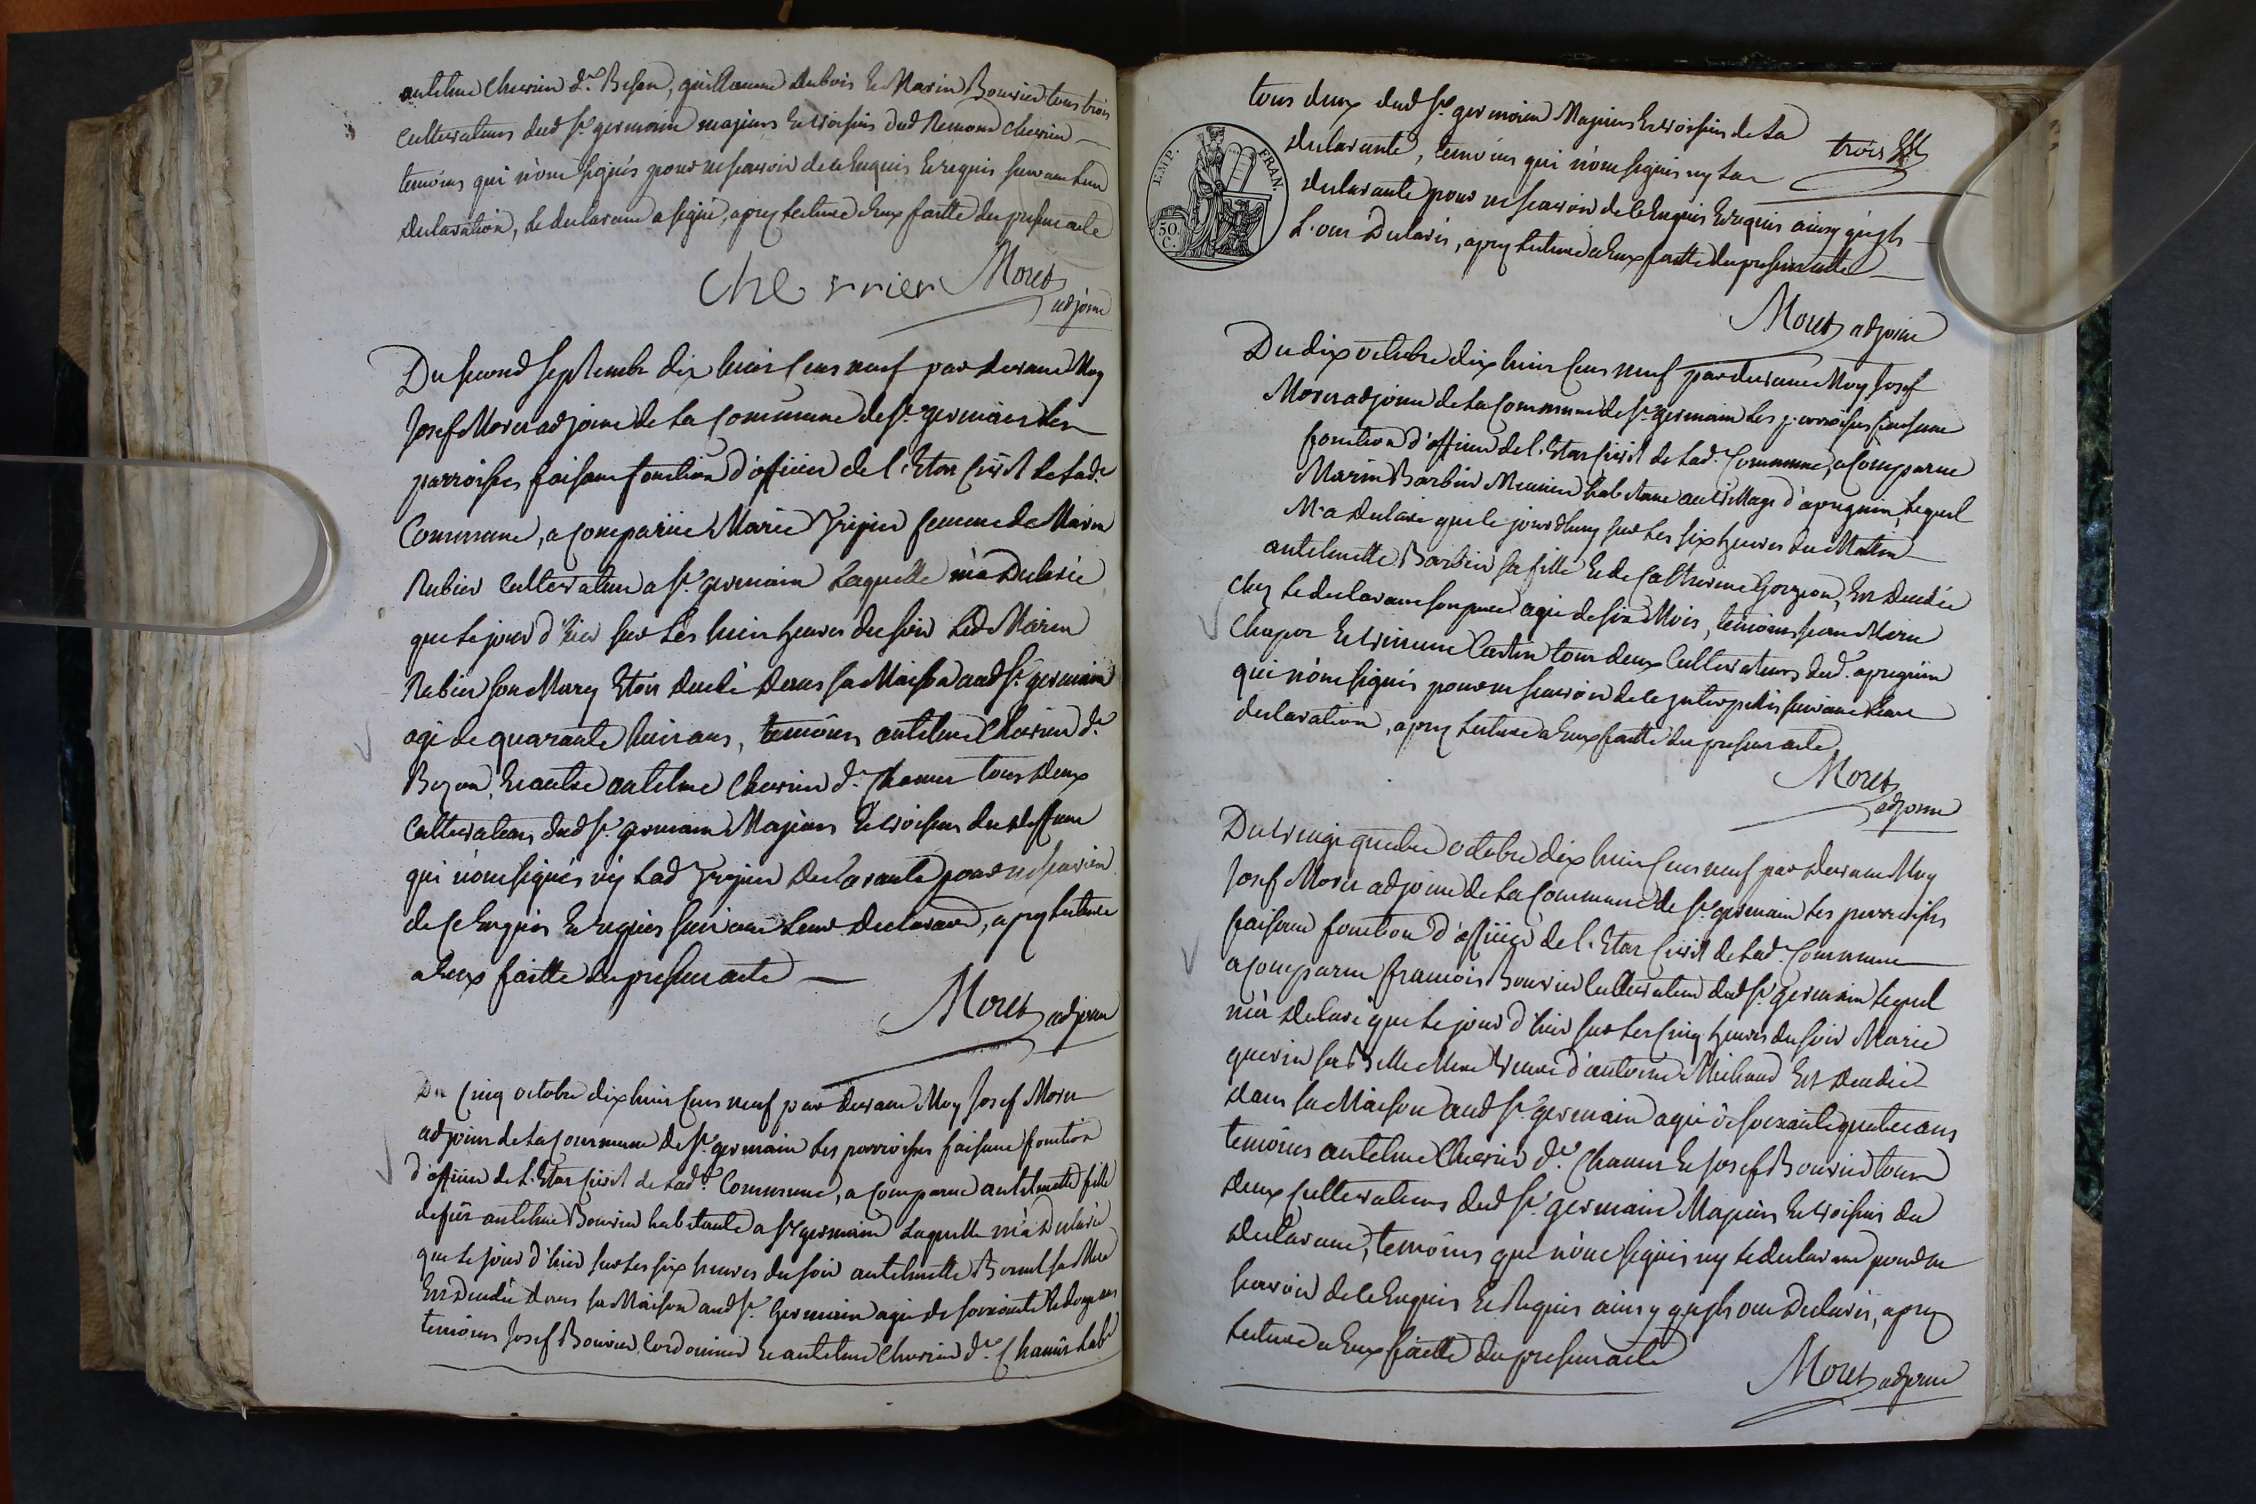 antelme Cherrier dt. Beson, guillaume dubois et Marin Bouvier tous trois
cultivateurs dud St. germain majeurs et voisins dud Remond cherrier
temoins qui n'ont signés pour ne scavoir de ce enquis et requis suivant leur
declaration, le declarant a signé, apres lecture a eux faitte du present acte
Che rrier Moret
adjoint
Du second septembre dix huit cens neuf par devant Moy
Josef Moret adjoint de la Commune de St. germain les
parroisses faisant fonction d'officier de l'Etat Civil de lade.
Commune, a comparüe Marie femme de Marin
Rubier cultivateur a St. germain laquelle m'a Declarée
que le jour d'hier sur les huit heures du soir led Marin
Rubier son Mary Etoit decedé dans sa Maison aud St. germain
agé de quarante huit ans, temoins antelme Cherrier dt.
Bezon, et autre antelme Cherrier dt. Chamur tous deux
cultivateurs dud St. germain Majeurs et voisins du deffunt
qui n'ont signés ny lad declarante pour ne scavoir
de ce enquis et requis suivant leur declaraon, apres lecture
a eux faitte du present acte
Moret adjoint
Du cinq octobre dix huit cens neuf par devant Moy Josef Moret
adjoint de la Commune de St. germain les parroisses faisant fonction
d'officier de l'Etat Civil de lade. Commune, a comparue antelmette fille
de fût antelme Bouvier habitante a St germain laquelle m'a Declarée
que le jour d'hier sur les six heures du soir antelmette sa Mere
Est Decedée dans sa Maison aud St. germain agée de soixante et douze ans
temoins Josef Bouvier Cordonnier et antelme Cherrier dt. Chamûr habt
tous deux dud St. germain Majeurs et voisins de la
trois
declarante, temoins qui n'ont signés ny la
declarante pour ne scavoir de ce Enquis et requis ainsy qu'ils
l'ont Declarés, apres lecture a eux faitte du present acte
EMP. FRAN.
50. C.
Moret adjoint
Du dix octobre dix huit cens neuf par devant Moy Josef
Moret adjoint de la Commune de St. germain les parroisses faisant
fonction d'officier de l'Etat Civil de lade. Commune, a comparue
Marin Barbier Meunier habitant au village d'apregnin, lequel
M'a declaré que le jourdhuy sur les six heures du Matin
antelmette Barbier sa fille et de Catherine Gonzon, Est Decedée
chez le declarant son pere agée de six Mois, temoins Jean Marie
Chapot et vincent Cartin tous deux Cultivateurs dudt. apregnin
qui n'ont signés pour ne scavoir de ce interpellés suivant leur
declaration, apres lecture a Eux faitte du present acte
Moret
adjoint
Du vingt quatre octobre dix huit cens neuf par devant Moy
Josef Moret adjoint de la Commune de St. germain les parroisses
faisant fonction d'officier de l'Etat Civil de lade. Commune
a comparue francois Bouvier Cultivateur dud St. germain lequel
m'a Declaré que le jour d'hier sur les cinq heures du soir Marie
guerin sa Belle Mere veuve d'antoine Michaud Est Decedée
dans sa Maison aud St. germain agée de soixante quatre ans
temoins antelme Cherrier dt. Chamur et Josef Bouvier tous
deux cultivateurs dud St. germain Majeurs et voisins du
declarant, temoins que n'ont signés ny le declarant pour ne
scavoir de ce Enquis et Requis ainsy qu'ils ont Declarés, apres
lecture a Eux faitte du present acte
Moret adjoint